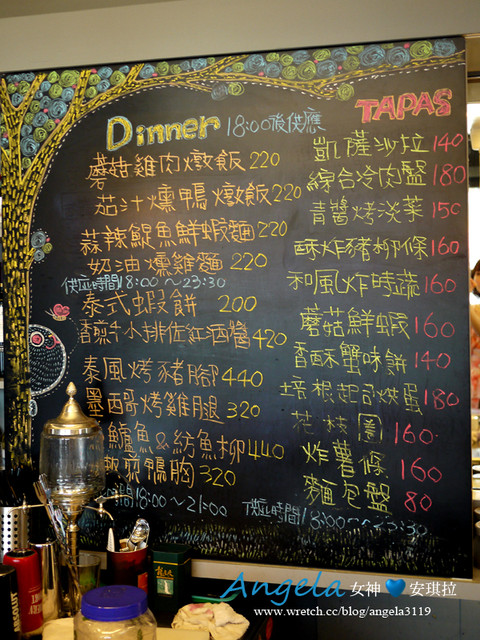 Dinner 18:00後供應
蘑菇雞肉燉飯 220
茄汁燻鴨燉飯 220
蒜辣鯷魚鮮蝦麵 220
奶油燻雞麵 220
供應時間18:00～23:30
泰式蝦餅 200
香煎牛小排佐紅酒醬 420
泰風烤豬腳 440
墨西哥烤雞腿 320
鱸魚&紡魚柳 440
鴨胸 320
18:00～21:00
TAPAS
凱薩沙拉 140
綜合冷肉盤 180
青醬烤淡菜 150
酥炸豬柳條 160
和風炸時蔬 160
蘑菇鮮蝦 160
香酥蟹味餅 140
培根起司烘蛋 180
花枝圈 160
炸薯條 160
麵包盤 80
供應時間18:00～23:30
ABSOLUT
Angela 女神 安琪拉
www.wretch.cc/blog/angela3119